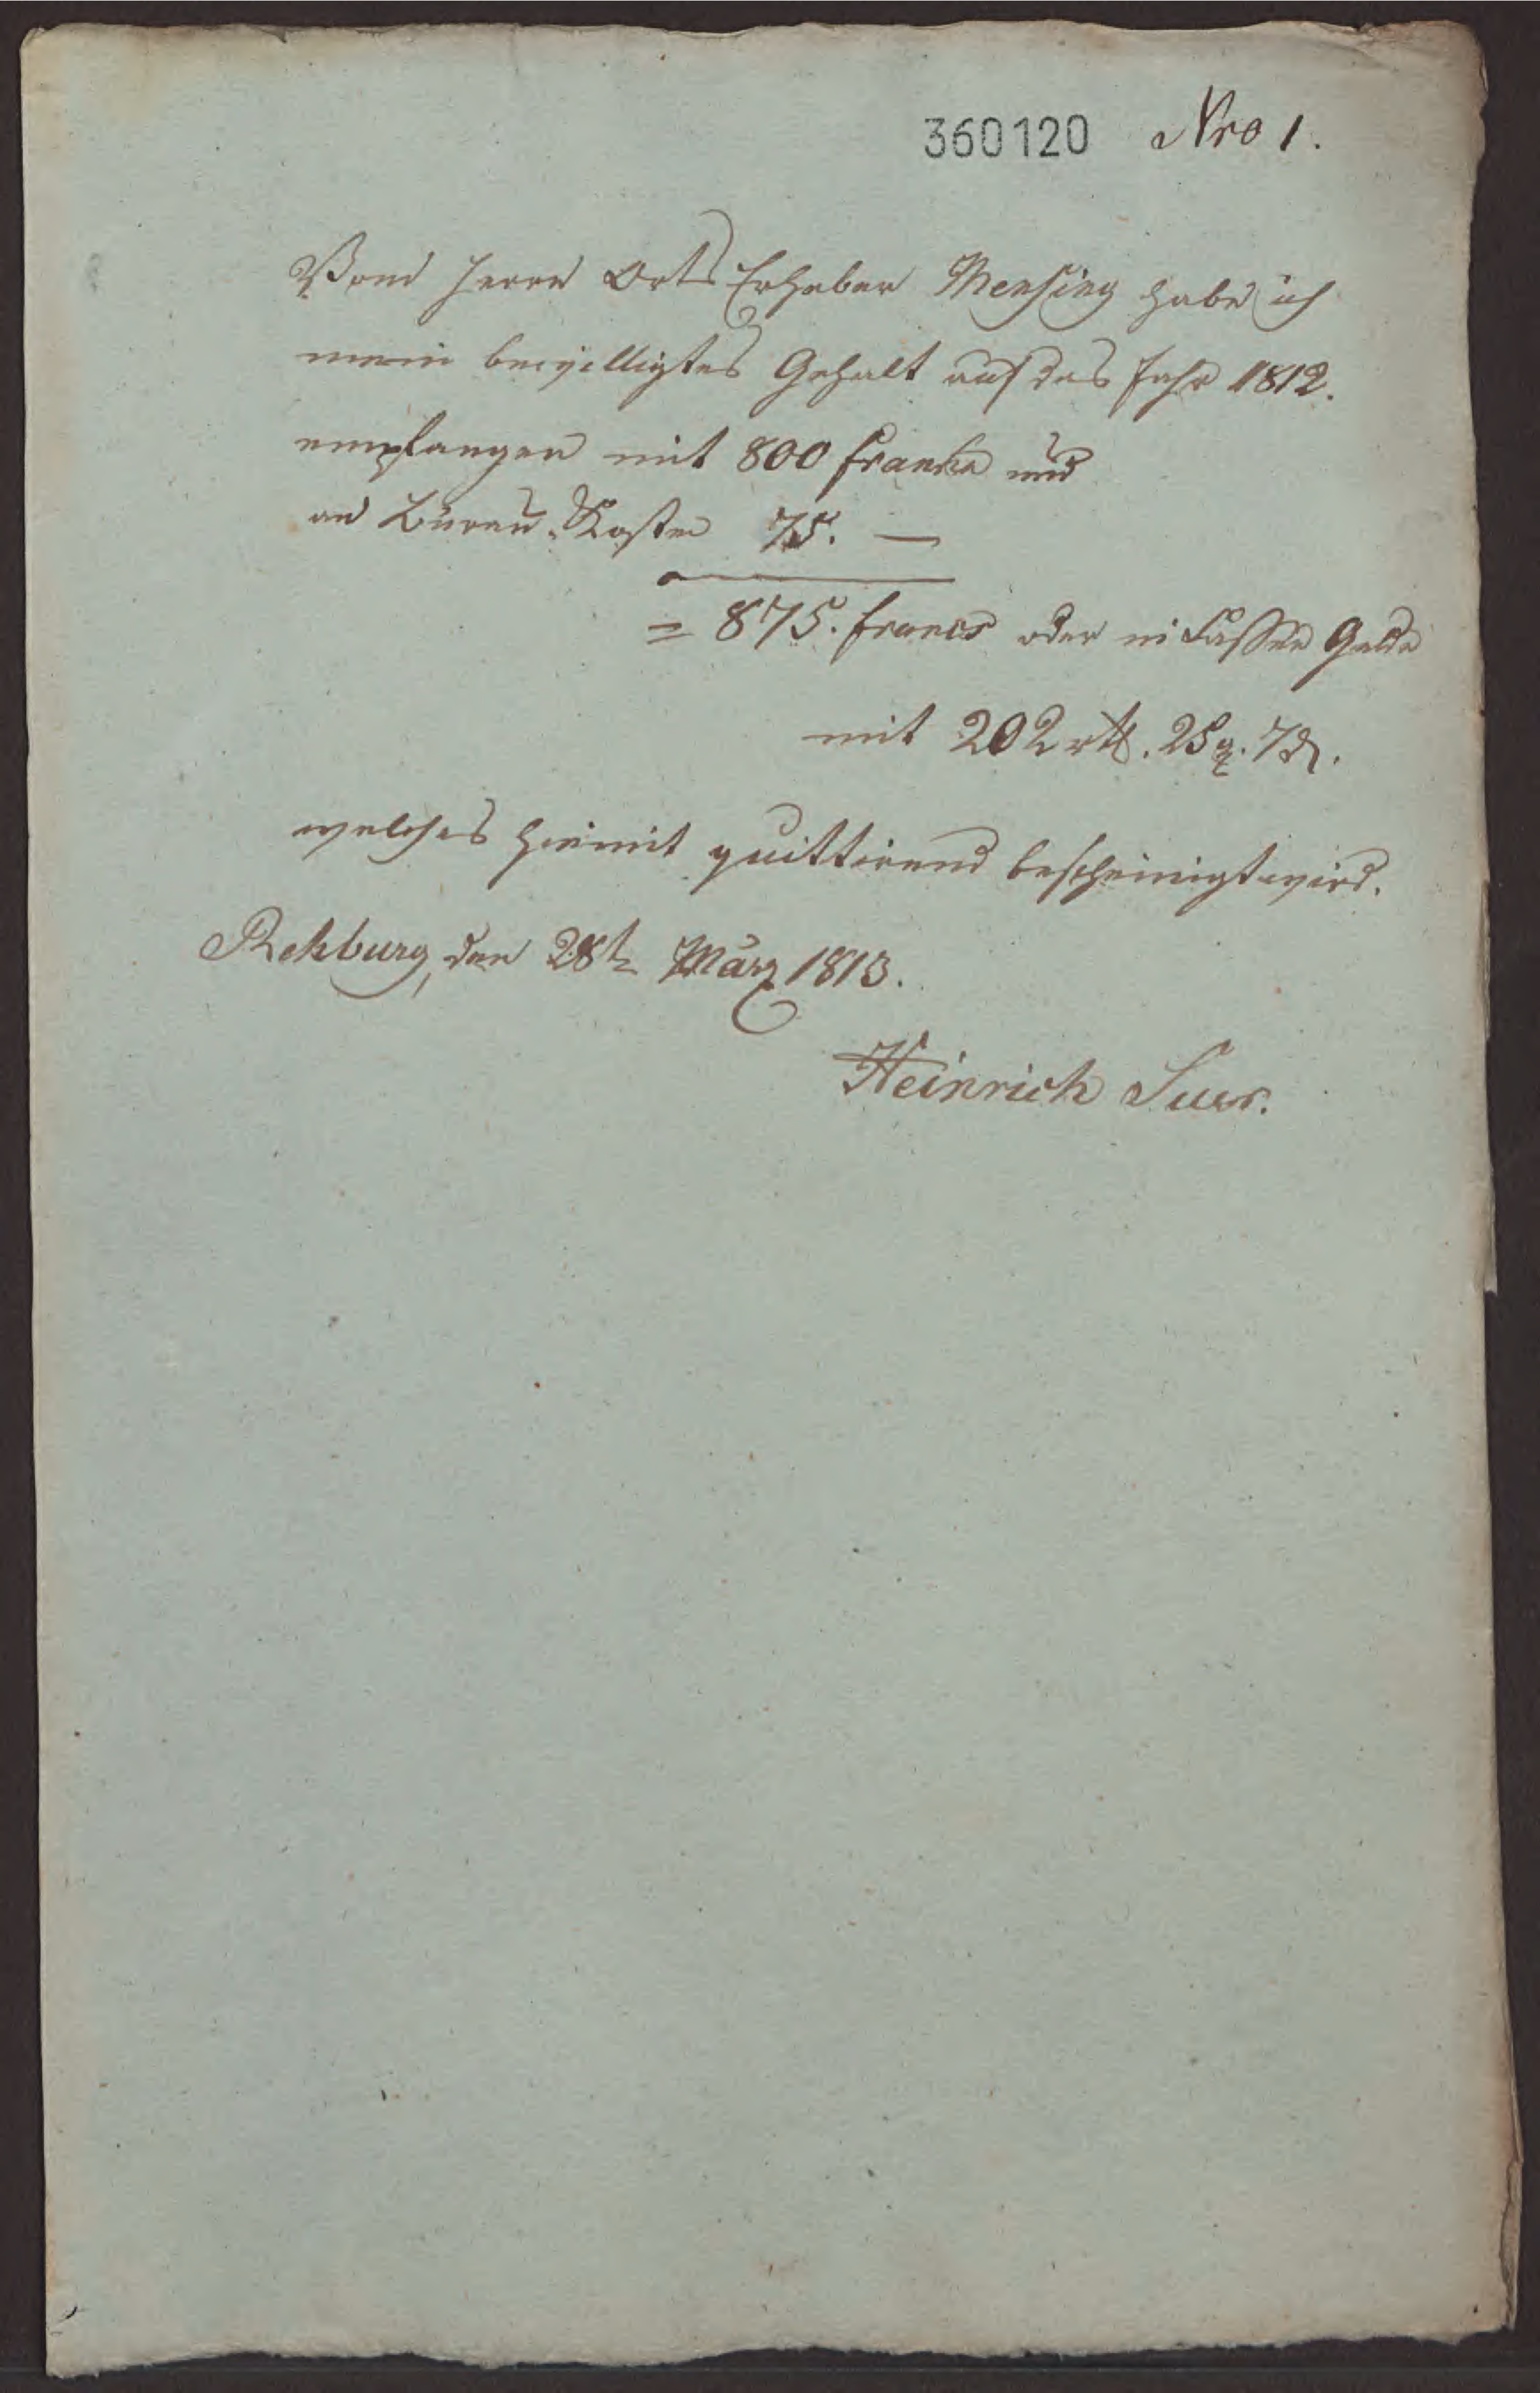 360120 Nro 1.
Vom Herrn Orts Erheber Mensing habe ich
mein bewilligtes Gehalt auf das Jahr 1812.
empfangen mit 800 Franken und
an Büreau-Kosten 75. —
= 875. francs oder in Cassen Gelde
mit 202 rtl. 25 g. 7 d.
welches hiemit quittirend bescheinigt wird.
Rehburg, den 28t März 1813.
Heinrich